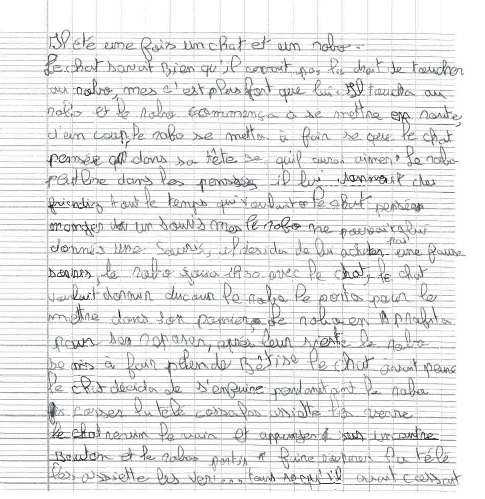 Il été une fois un chat et un robo.
Le chat savait Bien qu'il avait pas le droit de toucher
au robo, mes c'est plus fort que lui. Il toucha au
robo et le robo commença a se mettre en route,
d'un coup le robo se metta à fair se que le chat
pensée dans sa tête se quil aurai aimer. Le robo
dans les pensées, il lui donnait des
friendiz tout le temps qui voulait le chat pensée
manger un souris mes le robo ne pouvait lui
donnés une Souris, il désida de lui acheter une fausse
souris, le robo joua avec le chat, le chat
voulait dormir ducoup le robo le porta pour le
mettre dans son panier, le robo en profita
pour se reposer, après leur sieste le robo
se mis à fair plein de Bêtise le chat avait peure
le chat décida de s'enfuire pendant que le robo
casses la télé cassa les assiette les verre
le chat revenu le vain et appuyer sur un autre
Bouton et le robo partis faire réparer la télé
les assiette les ver... tout se qu'il avait cassait